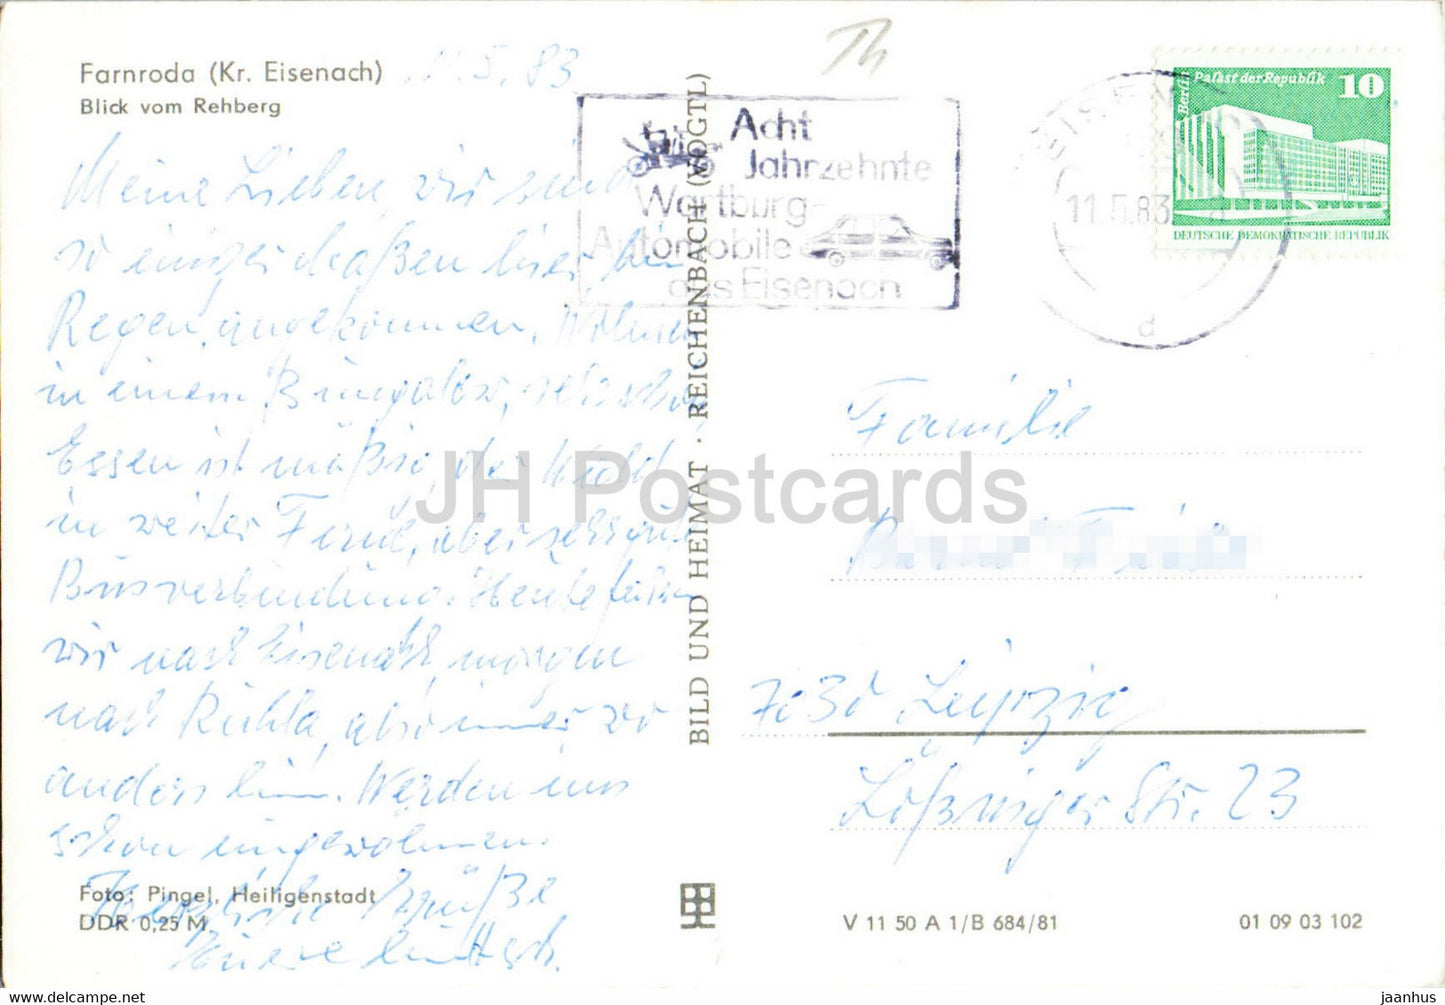 Farnroda (Kr. Eisenach)
Blick vom Rehberg
11.5.83
Meine Lieben, wir sind
so einigermaßen hier im
Regen angekommen. Wohnen
in einem Bungalow, sehr schön
Essen ist mäßig, der Wald
in weiter Ferne, aber sehr gute
Busverbindung. Heute fahren
wir nach Eisenach, morgen
nach Ruhla, also immer wo
anders hin. Werden uns
schon eingewöhnen.
Herzliche Grüße
Eure
Foto: Pingel, Heiligenstadt
DDR 0,25 M
BILD UND HEIMAT · REICHENBACH (VOGTL)
Th
Acht
Jahrzehnte
Wartburg-
Automobile
aus Eisenach
EISEN
11.5.83
d
Berlin Palast der Republik
10
DEUTSCHE DEMOKRATISCHE REPUBLIK
Familie
7030 Leipzig
Lößniger Str. 23
V 11 50 A 1/B 684/81
01 09 03 102
JH Postcards
https://jhpostcards.net
jaanhus